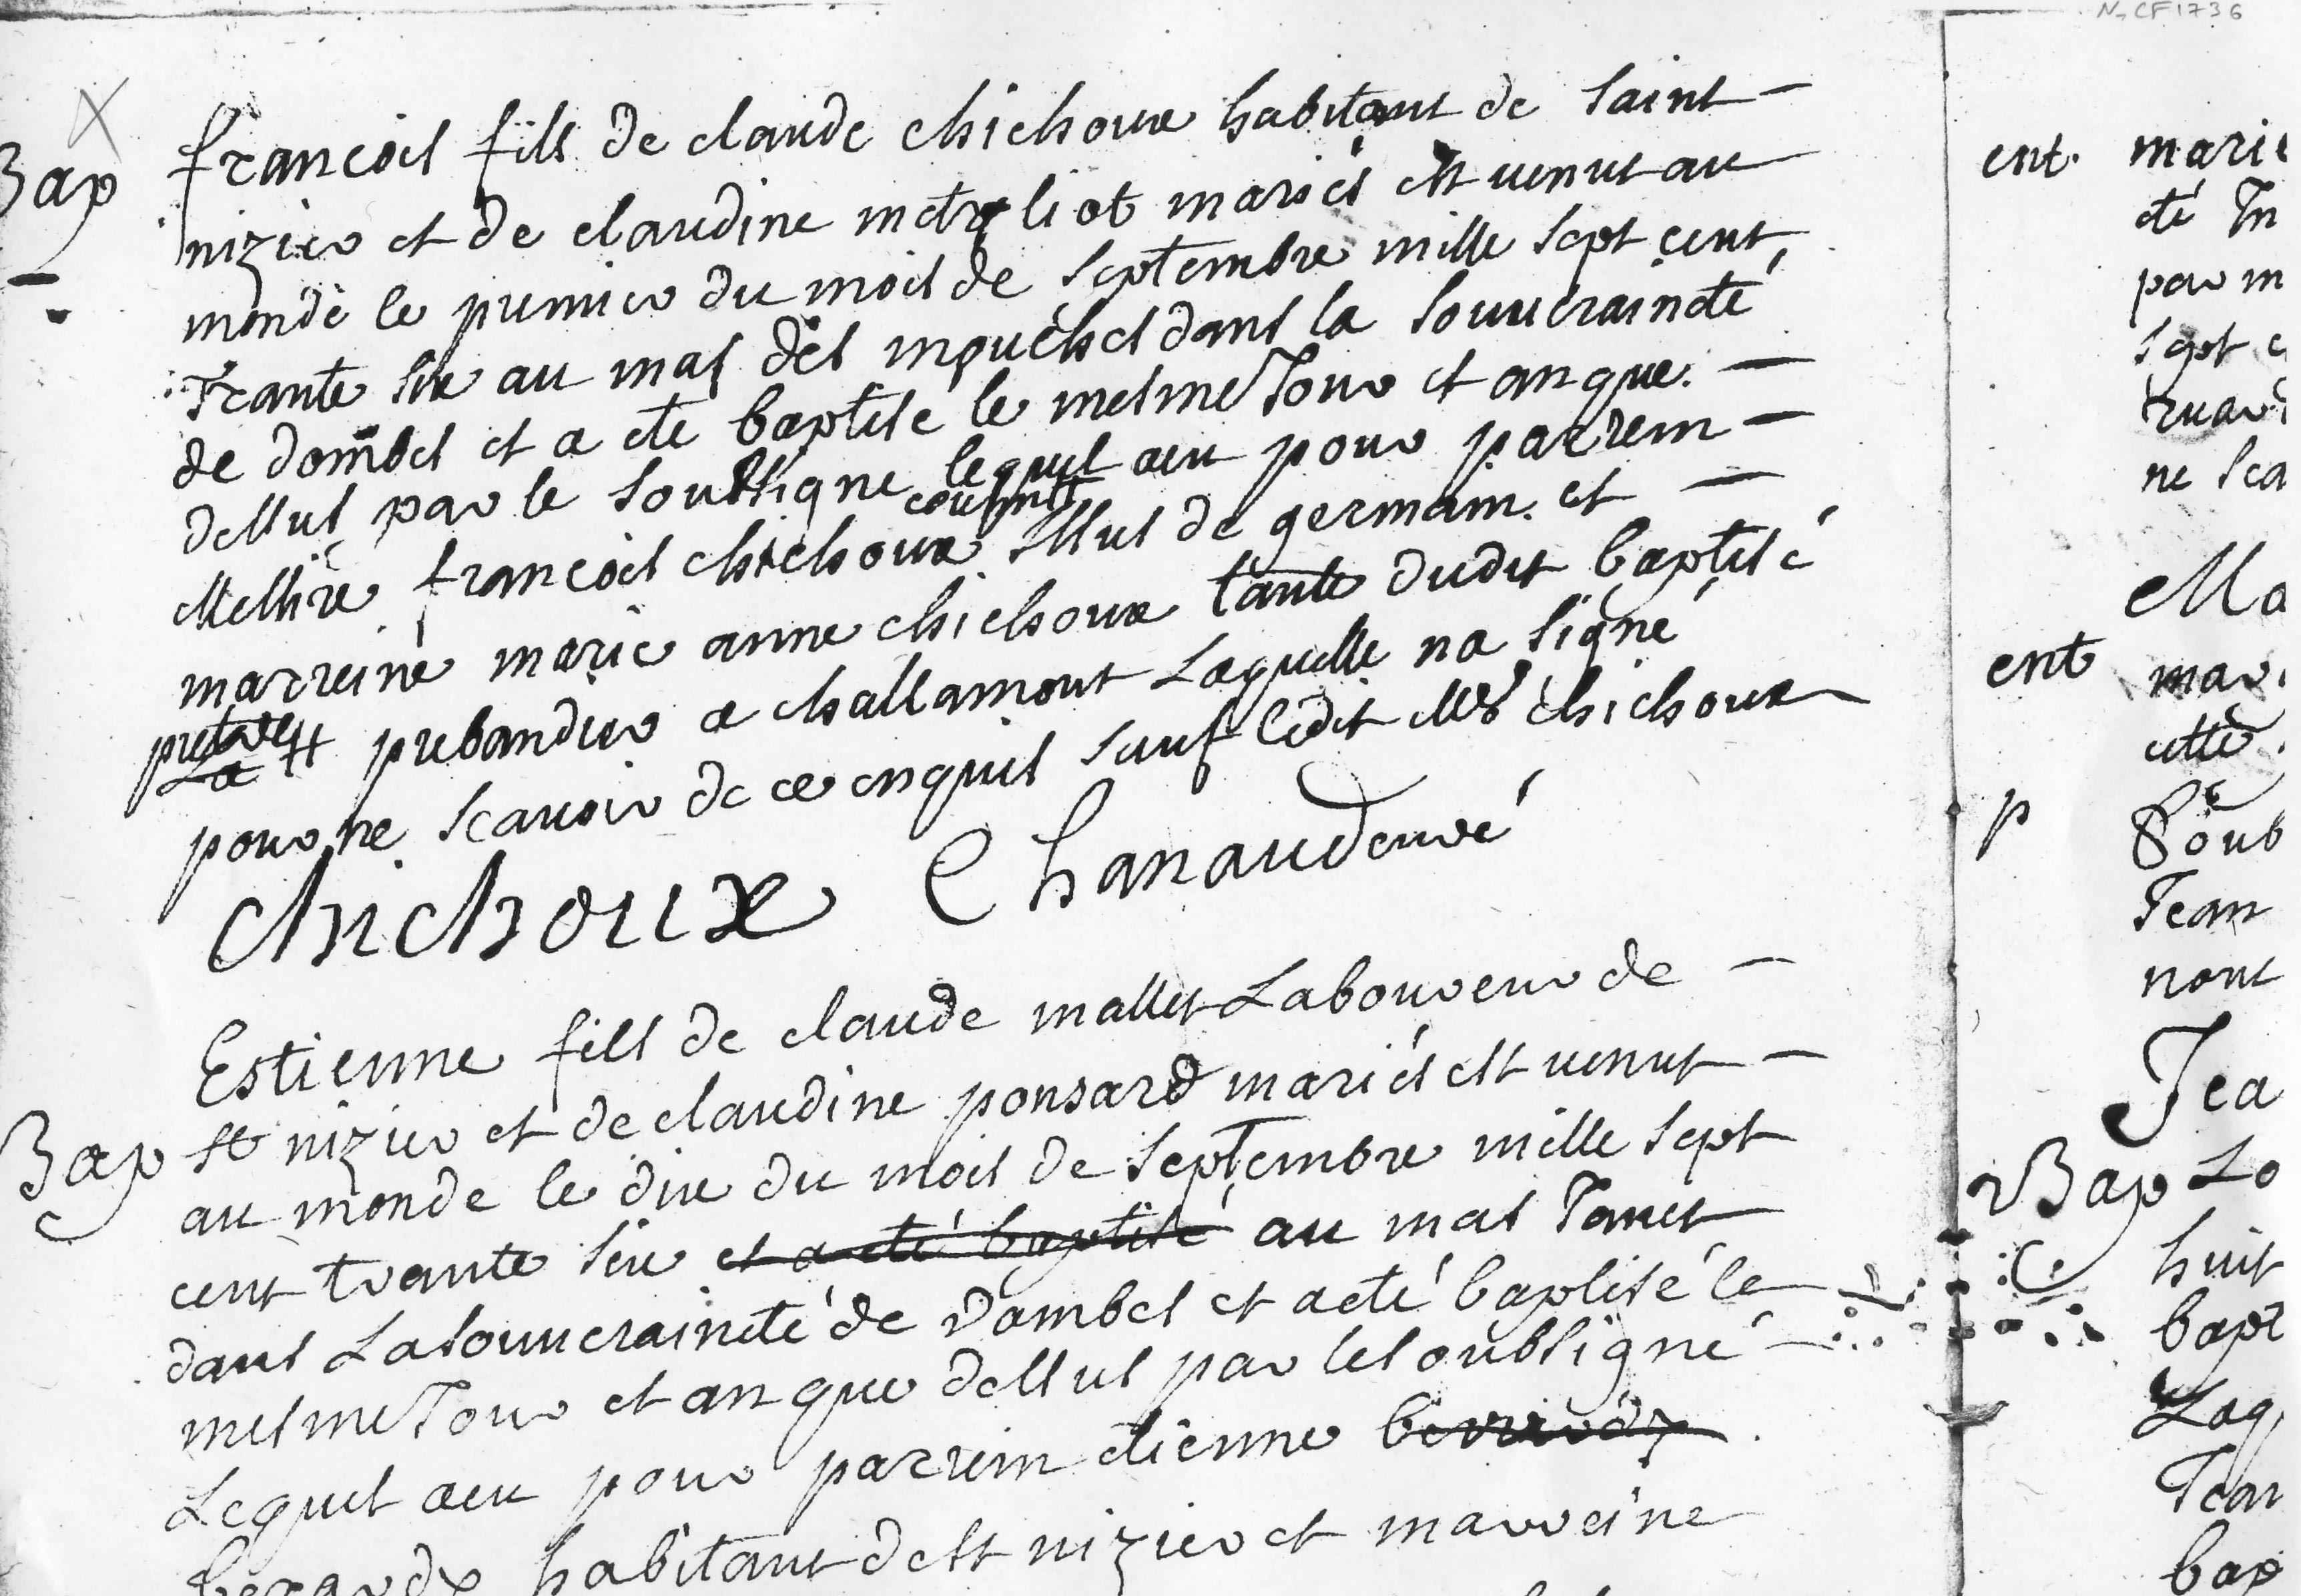 N, CF1736
Bap
francois fils de claude chichoux habitant de saint
nizier et de claudine metraliot mariés est venut au
monde le premier du mois de septembre mille sept cent
Trante six au mas des mouches dans la souveraineté
de dombes et a été baptise le mesme Jour et an que
dessus par le soussigne lequel a eu pour parrein
Messire francois chichoux cousint issus de germain et
marreine marie anne chichoux tante dudit baptisé
pretre
et prebandier a challamont Laquelle na signé
pour ne scavoir de ce enquis sauf ledit Mr chichoux
chichoux Chanaud curé
Bap
Estienne fils de claude mallet Laboureur de
st nizier et de claudine ponsard mariés est venut
au monde le dix du mois de Septembre mille sept
cent trante six et a eté baptisé au mas Tanet
dans La souveraineté de Dombes et a eté baptisé le
mesme Jour et an que dessus par le soubsigné
Lequel a eu pour parrein etienne
habitant de st nizier et marreine
ent. marie
été In
par m
sept c
ne sca
Ma
ent mar
p
Soub
Jean
nont
Jea
Bap Lo
huit
bapt
Laq
Jean
bap